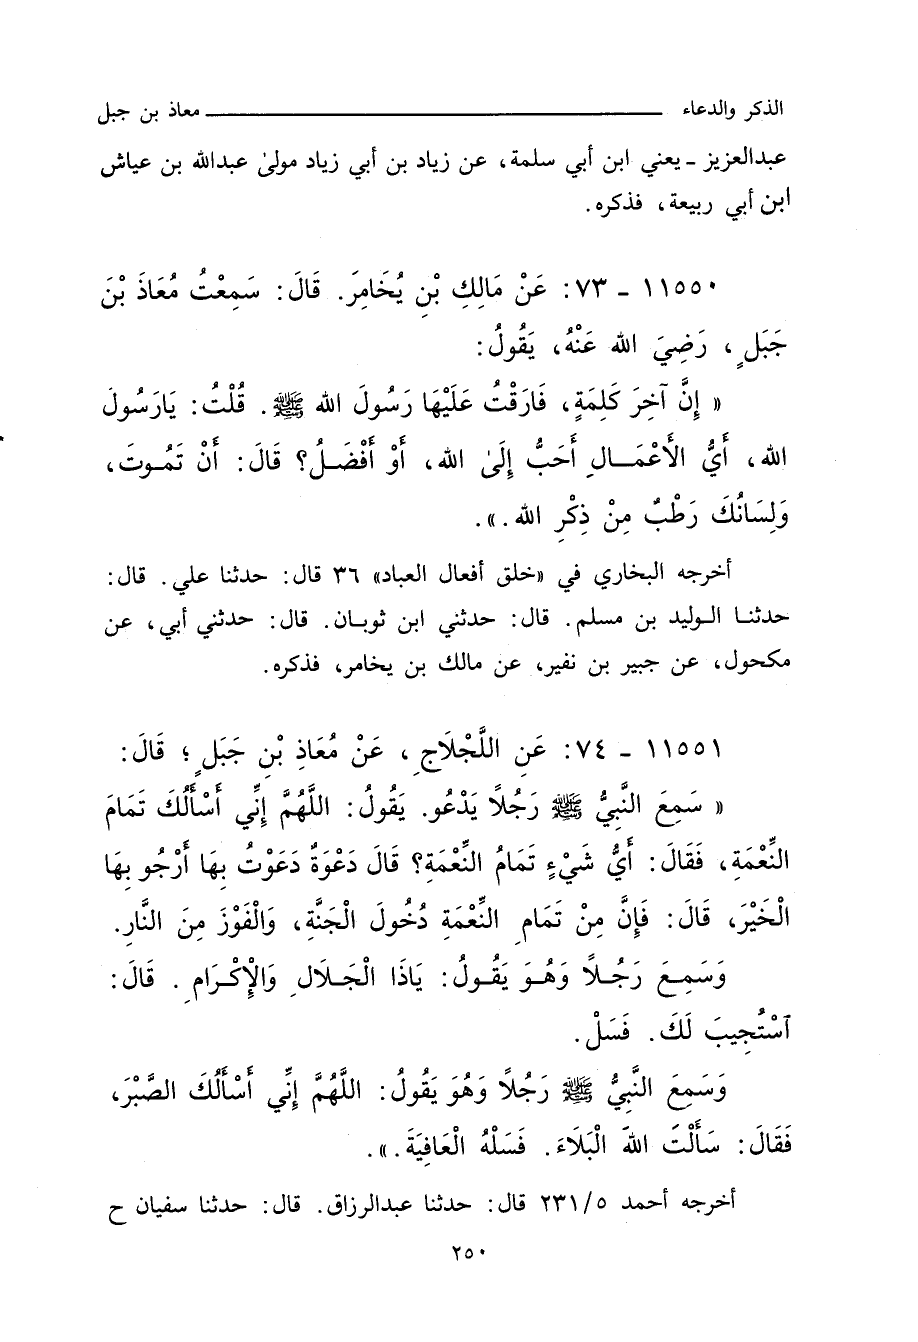 الذكر والدعاء ــــــــــــــــــــ معاذ بن جبل
عبدالعزيز ـ يعني ابن أبي سلمة، عن زياد بن أبي زياد مولىٰ عبدالله بن عياش
ابن أبي ربيعة، فذكره.
١١٥٥٠ ـ ٧٣: عَنْ مَالِكِ بْنِ يُخَامِرَ. قَالَ: سَمِعْتُ مُعَاذَ بْنَ
جَبَلٍ، رَضِيَ الله عَنْهُ، يَقُولُ:
« إِنَّ آخِرَ كَلِمَةٍ، فَارَقْتُ عَلَيْهَا رَسُولَ الله ﷺ. قُلْتُ: يَارَسُولَ
الله، أَيُّ الأَعْمَـالِ أَحَبُّ إِلَىٰ الله، أَوْ أَفْضَـلُ؟ قَالَ: أَنْ تَمُـوتَ،
وَلِسَانُكَ رَطْبٌ مِنْ ذِكْرِ الله.».
أخرجه البخاري في «خلق أفعال العباد» ٣٦ قال: حدثنا علي. قال:
حدثنـا الـوليد بن مسلم. قال: حدثني ابن ثوبـان. قال: حدثني أبي، عن
مكحول، عن جبير بن نفير، عن مالك بن يخامر، فذكره.
١١٥٥١ ـ ٧٤: عَنِ اللَّجْلَاجِ، عَنْ مُعَاذِ بْنِ جَبَلٍ؛ قَالَ:
« سَمِعَ النَّبِيُّ ﷺ رَجُلاً يَدْعُو. يَقُولُ: اللَّهُمَّ إِنِّي أَسْأَلُكَ تَمَامَ
النِّعْمَةِ، فَقَالَ: أَيُّ شَيْءٍ تَمَامُ النِّعْمَةِ؟ قَالَ دَعْوَةٌ دَعَوْتُ بِهَا أَرْجُو بِهَا
الْخَيْرَ، قَالَ: فَإِنَّ مِنْ تَمَامِ النِّعْمَةِ دُخُولَ الْجَنَّةِ، وَالْفَوْزَ مِنَ النَّارِ.
وَسَمِـعَ رَجُـلاً وَهُـوَ يَقُـولُ: يَاذَا الْجَـلَالِ وَالإِكْـرَامِ. قَالَ:
ٱسْتُجِيبَ لَكَ. فَسَلْ.
وَسَمِعَ النَّبِيُّ ﷺ رَجُلاً وَهُوَ يَقُولُ: اللَّهُمَّ إِنِّي أَسْأَلُكَ الصَّبْرَ،
فَقَالَ: سَأَلْتَ اللهَ الْبَلَاءَ. فَسَلْهُ الْعَافِيَةَ.».
أخرجه أحمد ٢٣١/٥ قال: حدثنا عبدالرزاق. قال: حدثنا سفيان ح
٢٥٠